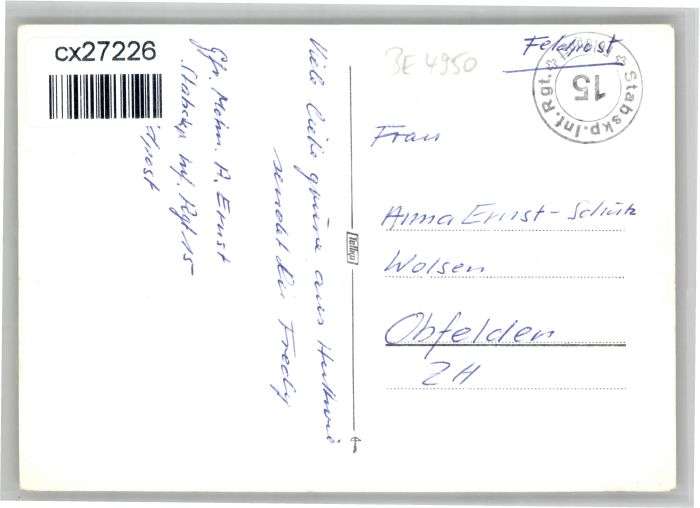 cx27226
BE 4950
Feldpost
Stabskp. Inf. Rgt.
15
Frau
Anna Ernst-Schütz
Wolsen
Obfelden
ZH
Viele liebe grüsse aus Huttwil
sendet dir Fredy
Gfr. A. Ernst
Stabskp Inf. Rgt 15